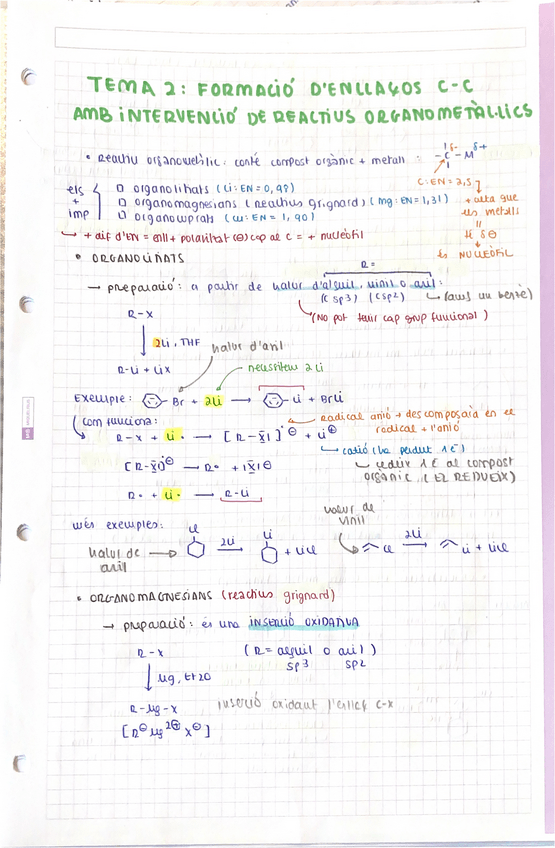 TEMA 2: FORMACIÓ D'ENLLAÇOS C-C
AMB INTERVENCIÓ DE REACTIUS ORGANOMETÀL·LICS
• Reactiu organometàl·lic: conté compost orgànic + metall: -C δ- - M δ+
C: EN = 2,5
els + imp
□ organolitats (Li: EN = 0,98)
□ organomagnesians (Reactius grignard) (Mg: EN = 1,31)
□ organocuprats (Cu: EN = 1,90)
+ alta que els metalls
||
té δ⊖
↓
és NUCLEÒFIL
↪ + dif d'EN = enll + polaritat (⊖) cap al C = + nucleòfil
• ORGANOLITATS
R =
→ preparació: a partir de halur d'alquil, vinil o aril:
(C sp3) (C sp2) ↪ (amb un benzè)
(No pot tenir cap grup funcional)
R-X
↓ 2Li, THF
R-Li + LiX
halur d'aril
necessitem 2Li
Exemple: Br + 2Li → Li + BrLi
Com funciona:
radical anió → descomposarà en el
radical + l'anió
R-X + Li· → [R-X̄|]·⊖ + Li⊕
↪ catió (ha perdut 1e⁻)
↪ cedeix 1e⁻ al compost
orgànic (EL REDUEIX)
[R-X̄|]·⊖ → R· + |X̄|⊖
R· + Li· → R-Li
més exemples:
halur de vinil
halur de aril → Cl 2Li → Li + LiCl
Cl 2Li → Li + LiCl
• ORGANOMAGNESIANS (reactius grignard)
→ preparació: és una INSERCIÓ OXIDATIVA
R-X (R = alquil o aril)
sp3 sp2
↓ Mg, Et2O
R-Mg-X
inserció oxidant l'enllaç C-X
[R⊖ Mg2⊕ X⊖]